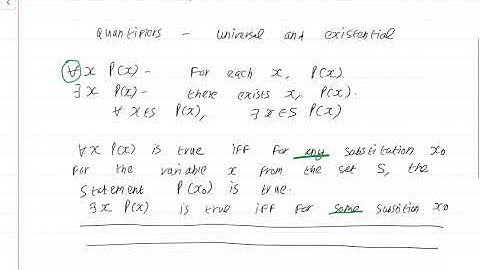 Quantifiers - universal and existential
∀x P(x) - For each x, P(x)
∃x P(x) - there exists x, P(x).
∀x∈S P(x), ∃x∈S P(x)
∀x P(x) is true iff for any substitution x₀
for the variable x from the set S, the
statement P(x₀) is true.
∃x P(x) is true iff for some substition x₀